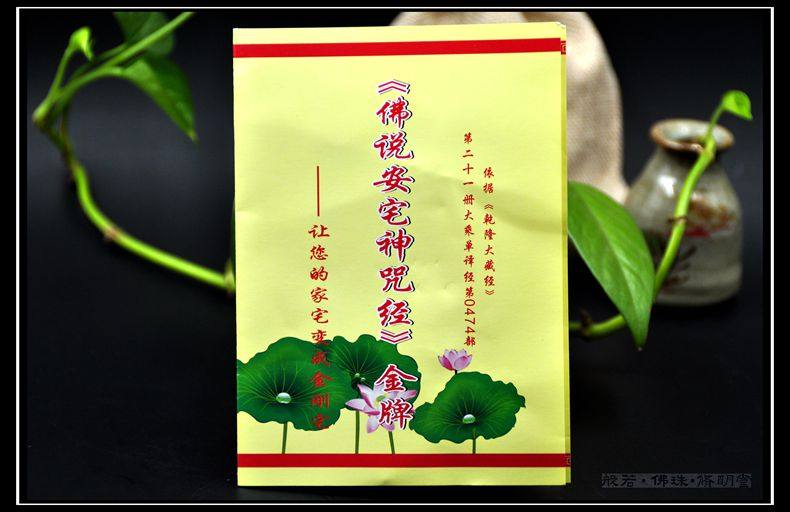 依据《乾隆大藏经》
第二十一册大乘单译经第0474部
《佛说安宅神咒经》金牌
——让您的家宅变成金刚宅
般若·佛珠·修明堂